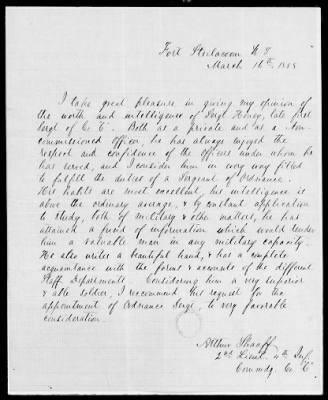 Fort Steilacoom W. T.
March 16th, 1859
I take great pleasure in giving my opinion of
the worth and intelligence of Sergt Honey, late first
Sergt of Co "C". Both as a private and as a Non-
commissioned officer, he has always enjoyed the
respect and confidence of the officers under whom he
has served, and I consider him in every way fitted
to fulfill the duties of a Sergeant of Ordnance.
His habits are most excellent, his intelligence is
above the ordinary average, & by constant application
to study, both of military & other matters, he has
attained a fund of information which would render
him a valuable man in any military capacity.
He also writes a beautiful hand, & has a complete
acquaintance with the forms & accounts of the different
Staff Departments. Considering him a very superior
& able soldier, I recommend his request for the
appointment of Ordnance Sergt, to very favorable
consideration.
Arthur Shaaff
2nd Lieut. 4th Inf.
Commdg. Co "C"